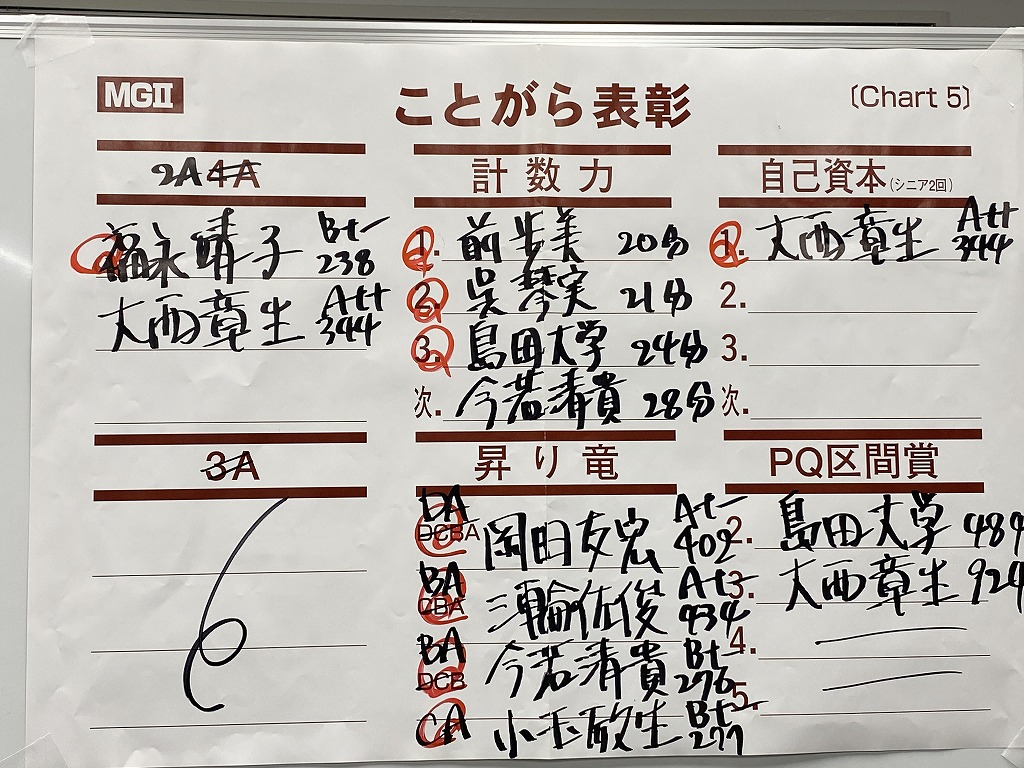 MGⅡ
ことがら表彰
〔Chart 5〕
2A 4A
福永晴子 B+ 238
大西章生 A++ 344
計数力
1. 前歩美 20分
2. 呉琴実 21分
3. 島田大学 24分
次. 今若清貴 28分
自己資本(シニア2回)
1. 大西章生 A++ 344
2.
3.
次.
3A
昇り竜
DA DCBA 岡田友宏 A+ 402
BA CBA 三輪佐俊 A+ 434
BA DCB 今若清貴 B+ 276
CA 小玉敬生 B+ 277
PQ区間賞
2. 島田大学 484
3. 大西章生 924
4.
5.